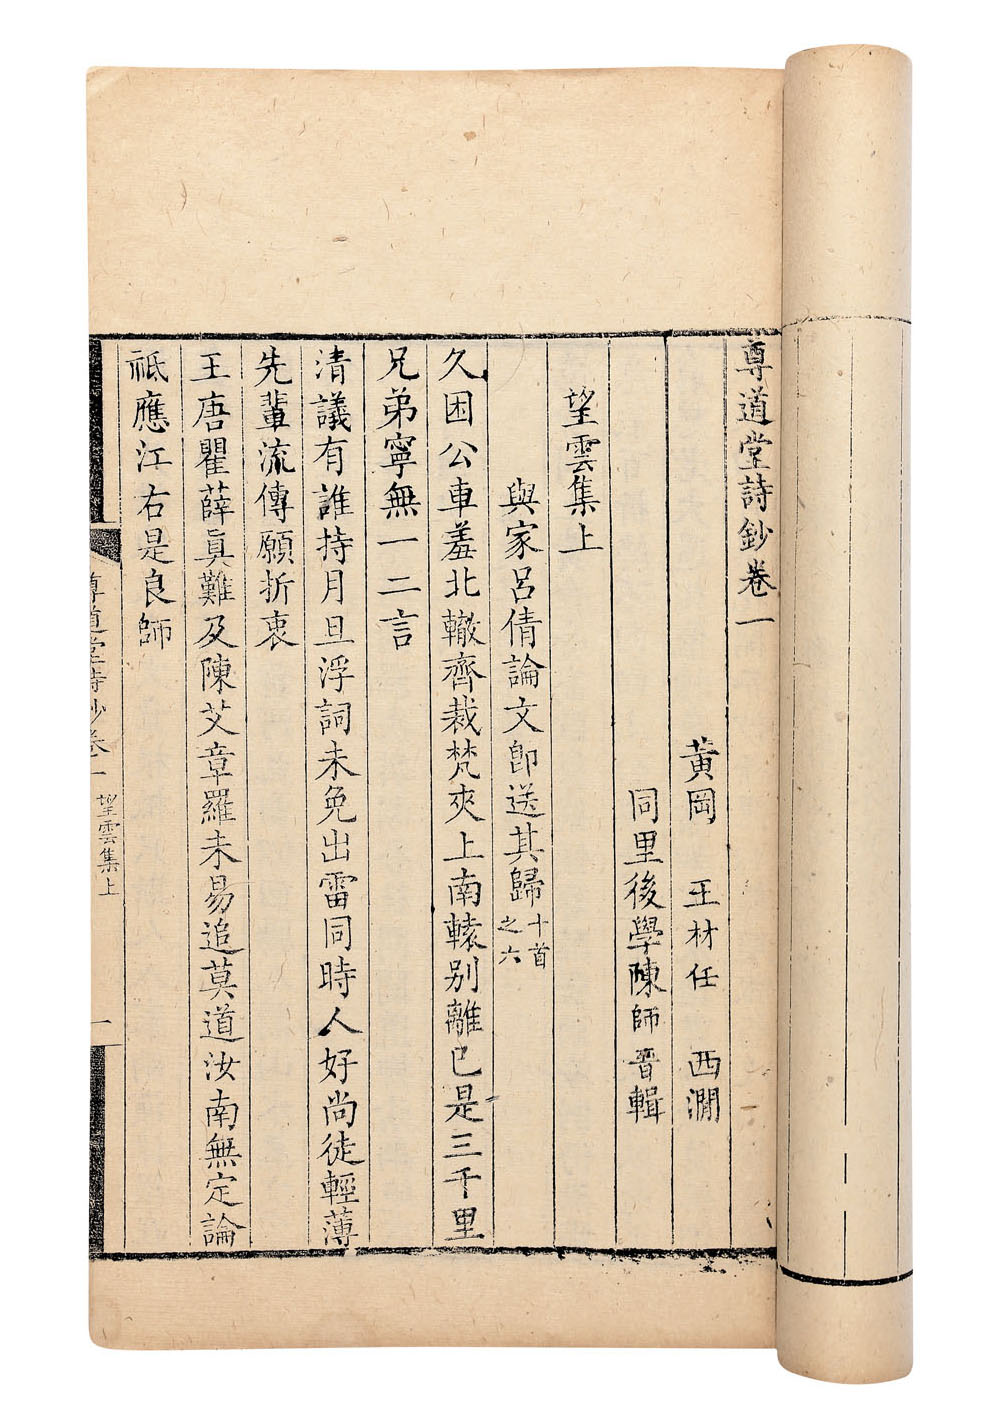 尊道堂詩鈔卷一
黄岡 王材任 西澗
同里後學陳師晋輯
望雲集上
與家呂倩論文卽送其歸十首之六
久困公車羞北轍齊裁梵夾上南轅別離已是三千里
兄弟寧無一二言
清議有誰持月旦浮詞未免出雷同時人好尚徒輕薄
先輩流傳願折衷
王唐瞿薛眞難及陳艾章羅未易追莫道汝南無定論
祗應江右是良師
尊道堂詩鈔卷一 望雲集上 一